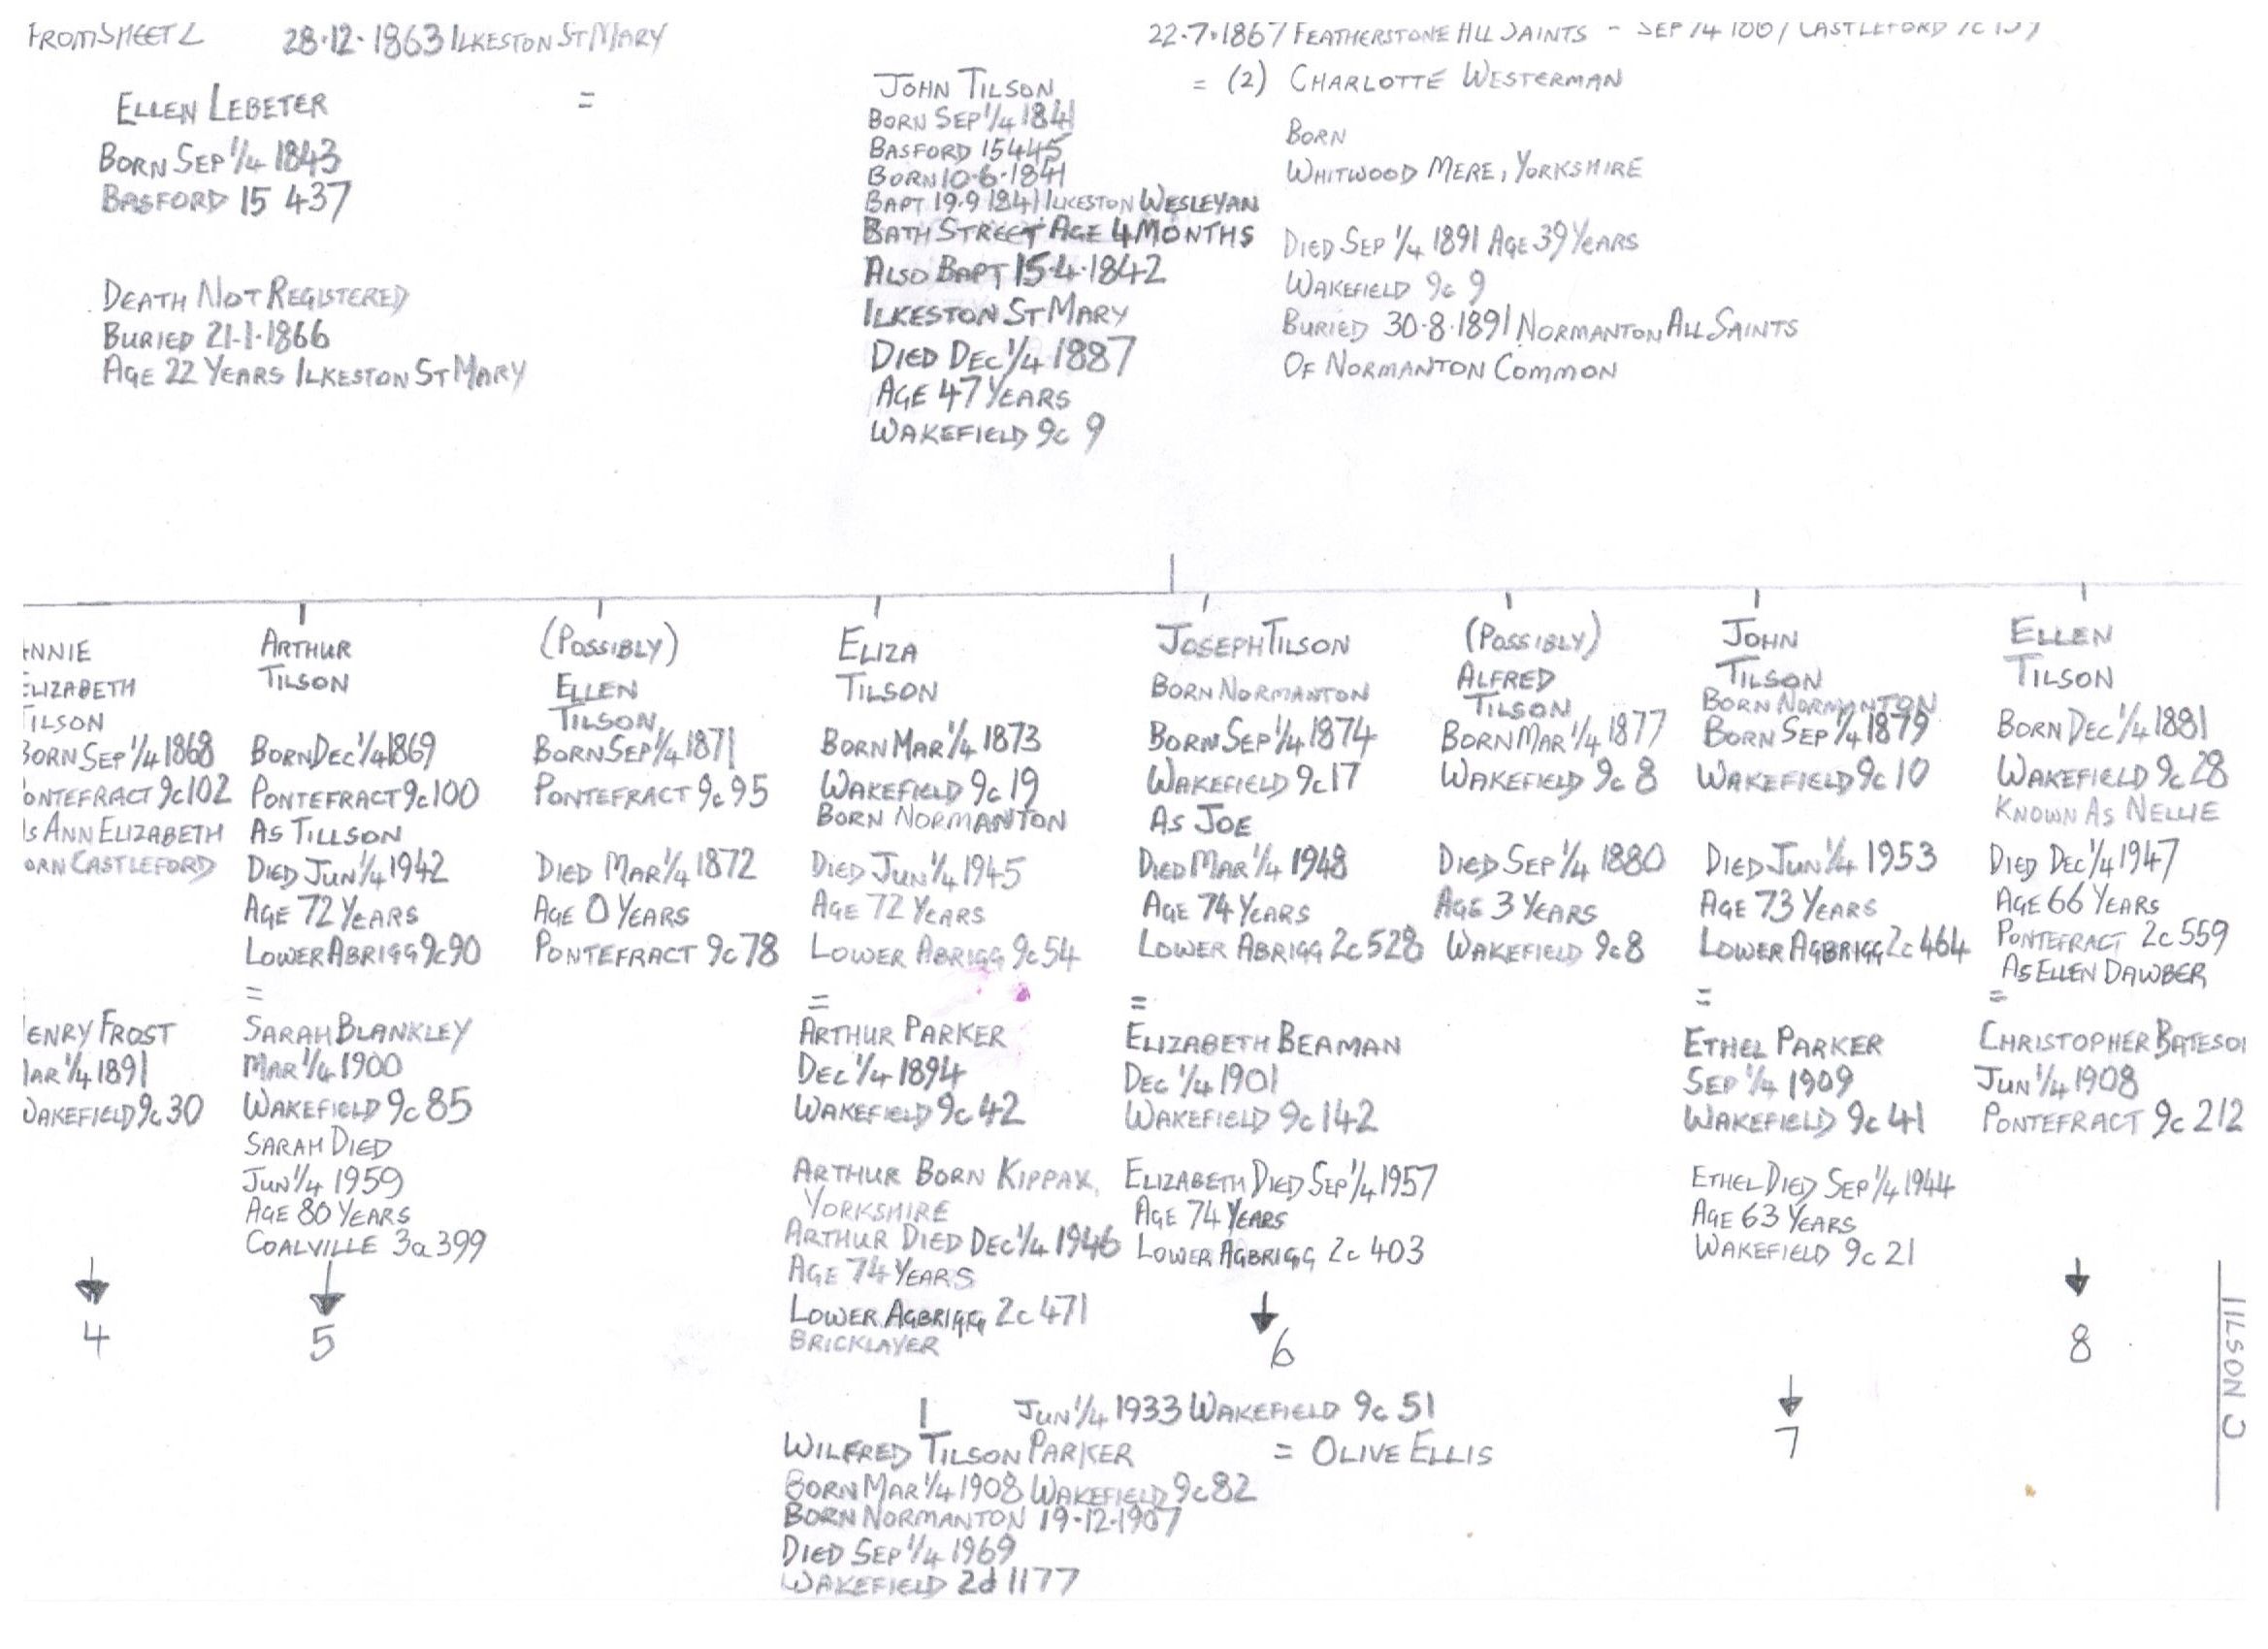 FROM SHEET 2
28·12·1863 ILKESTON ST MARY
ELLEN LEBETER
=
BORN SEP 1/4 1843
BASFORD 15 437
DEATH NOT REGISTERED
BURIED 21-1-1866
AGE 22 YEARS ILKESTON ST MARY
JOHN TILSON
BORN SEP 1/4 1841
BASFORD 15 445
BORN 10·6·1841
BAPT 19·9 1841 ILKESTON WESLEYAN
BATH STREET AGE 4 MONTHS
ALSO BAPT 15·4·1842
ILKESTON ST MARY
DIED DEC 1/4 1887
AGE 47 YEARS
WAKEFIELD 9c 9
22·7·1867 FEATHERSTONE ALL SAINTS - SEP 1/4 1867 CASTLEFORD 9c
= (2) CHARLOTTE WESTERMAN
BORN
WHITWOOD MERE, YORKSHIRE
DIED SEP 1/4 1891 AGE 39 YEARS
WAKEFIELD 9c 9
BURIED 30·8·1891 NORMANTON ALL SAINTS
OF NORMANTON COMMON
NNIE
ELIZABETH
TILSON
BORN SEP 1/4 1868
ONTEFRACT 9c 102
AS ANN ELIZABETH
ORN CASTLEFORD
ENRY FROST
MAR 1/4 1891
WAKEFIELD 9c 30
4
ARTHUR
TILSON
BORN DEC 1/4 1869
PONTEFRACT 9c 100
AS TILLSON
DIED JUN 1/4 1942
AGE 72 YEARS
LOWER ABRIGG 9c 90
=
SARAH BLANKLEY
MAR 1/4 1900
WAKEFIELD 9c 85
SARAH DIED
JUN 1/4 1959
AGE 80 YEARS
COALVILLE 3a 399
5
(POSSIBLY)
ELLEN
TILSON
BORN SEP 1/4 1871
PONTEFRACT 9c 95
DIED MAR 1/4 1872
AGE 0 YEARS
PONTEFRACT 9c 78
ELIZA
TILSON
BORN MAR 1/4 1873
WAKEFIELD 9c 19
BORN NORMANTON
DIED JUN 1/4 1945
AGE 72 YEARS
LOWER ABRIGG 9c 54
=
ARTHUR PARKER
DEC 1/4 1894
WAKEFIELD 9c 42
ARTHUR BORN KIPPAX,
YORKSHIRE
ARTHUR DIED DEC 1/4 1946
AGE 74 YEARS
LOWER AGBRIGG 2c 471
BRICKLAYER
JUN 1/4 1933 WAKEFIELD 9c 51
WILFRED TILSON PARKER = OLIVE ELLIS
BORN MAR 1/4 1908 WAKEFIELD 9c 82
BORN NORMANTON 19-12-1907
DIED SEP 1/4 1969
WAKEFIELD 2d 1177
JOSEPH TILSON
BORN NORMANTON
BORN SEP 1/4 1874
WAKEFIELD 9c 17
AS JOE
DIED MAR 1/4 1948
AGE 74 YEARS
LOWER ABRIGG 2c 528
=
ELIZABETH BEAMAN
DEC 1/4 1901
WAKEFIELD 9c 142
ELIZABETH DIED SEP 1/4 1957
AGE 74 YEARS
LOWER AGBRIGG 2c 403
6
(POSSIBLY)
ALFRED
TILSON
BORN MAR 1/4 1877
WAKEFIELD 9c 8
DIED SEP 1/4 1880
AGE 3 YEARS
WAKEFIELD 9c 8
JOHN
TILSON
BORN NORMANTON
BORN SEP 1/4 1879
WAKEFIELD 9c 10
DIED JUN 1/4 1953
AGE 73 YEARS
LOWER AGBRIGG 2c 464
=
ETHEL PARKER
SEP 1/4 1909
WAKEFIELD 9c 41
ETHEL DIED SEP 1/4 1944
AGE 63 YEARS
WAKEFIELD 9c 21
7
ELLEN
TILSON
BORN DEC 1/4 1881
WAKEFIELD 9c 28
KNOWN AS NELLIE
DIED DEC 1/4 1947
AGE 66 YEARS
PONTEFRACT 2c 559
AS ELLEN DAWBER
=
CHRISTOPHER BATESO
JUN 1/4 1908
PONTEFRACT 9c 212
8
TILSON 3